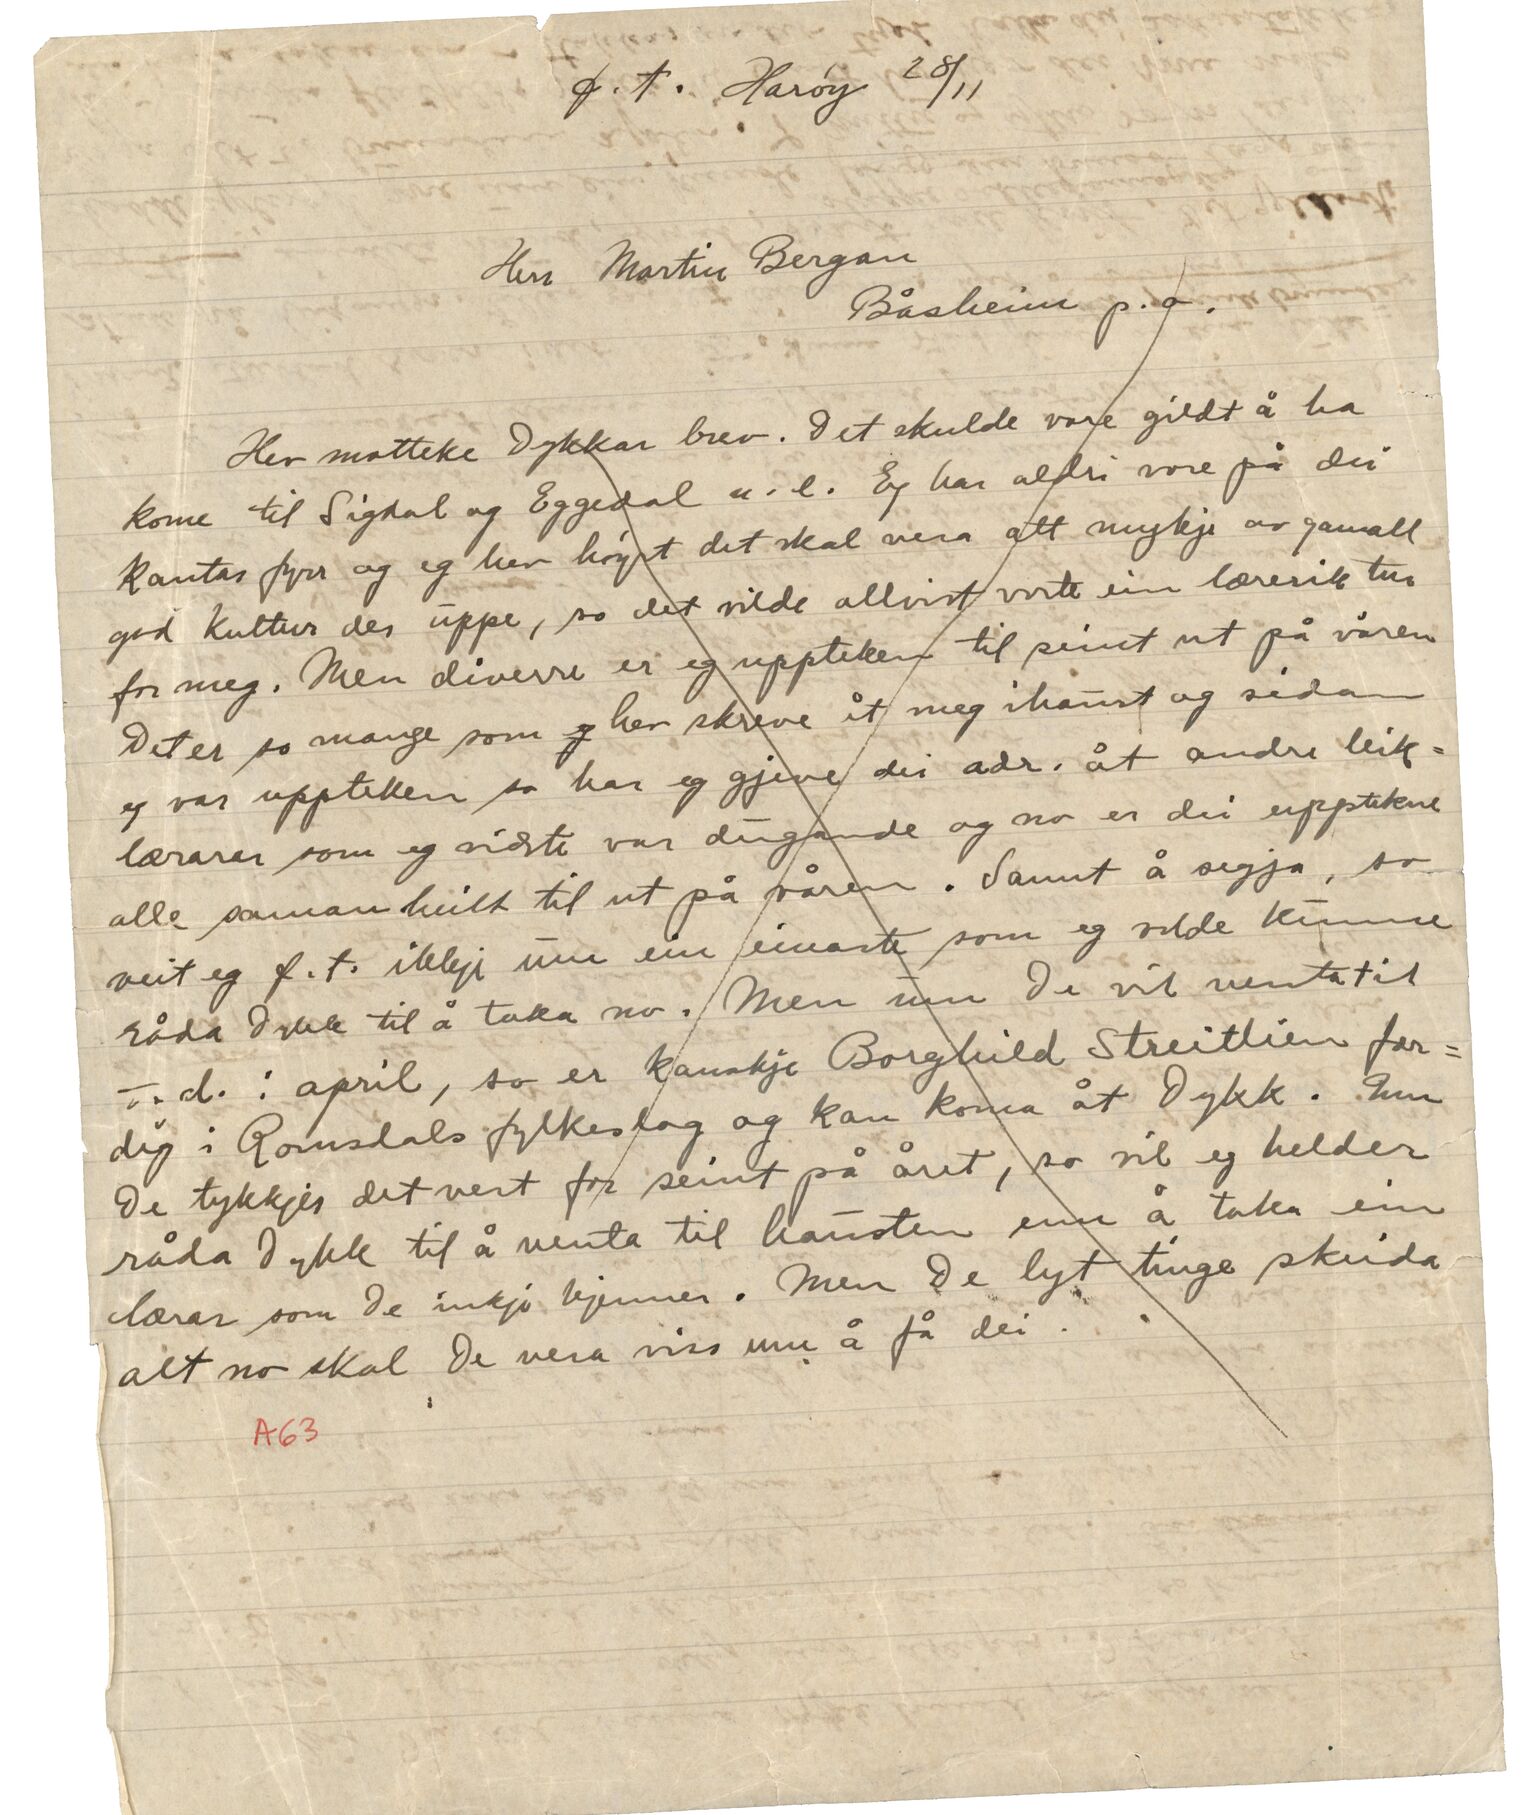 f. t. Harøy 28/11
Herr Martin Bergan
Båsheim p.a.
Hev motteke Dykkar brev. Det skulde vore gildt å ha
kome til Sigdal og Eggedal u. l. Eg har aldri vore på dei
kantar fyrr og eg hev høyrt det skal vera att mykje av gamall
god kultur der uppe, so det vilde allvist vorte ein lærerik tur
for meg. Men diverre er eg uppteken til seint ut på våren
Det er so mange som hev skreve åt meg ihaust og sidan
eg var uppteken so har eg gjeve dei adr. åt andre leik=
lærarar som eg visste var dugande og no er dei upptekne
alle saman heilt til ut på våren. Sannt å segja, so
veit eg f. t. ikkje um ein einaste som eg vilde kunne
råda Dykk til å taka no. Men um De vil venta til
t. d. i april, so er kanskje Borghild Streitlien fær=
dig i Romsdals fylkeslag og kan koma åt Dykk. Um
De tykkjer det vert for seint på året, so vil eg helder
råda Dykk til å venta til hausten enn å taka ein
lærar som De inkje kjenner. Men De lyt tinge skeida
alt no skal De vera viss um å få dei.
A63